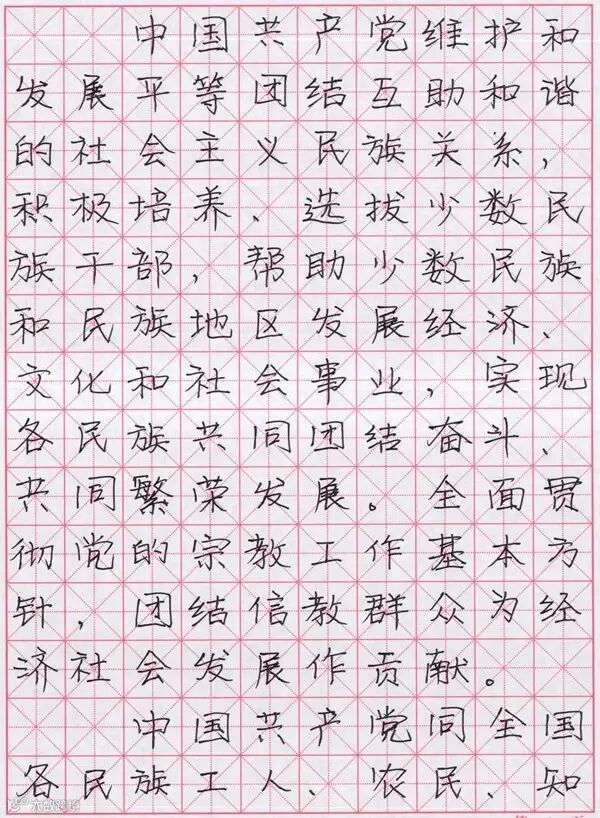 中国共产党维护和
发展平等团结互助和谐
的社会主义民族关系，
积极培养、选拔少数民
族干部，帮助少数民族
和民族地区发展经济、
文化和社会事业，实现
各民族共同团结奋斗、
共同繁荣发展。全面贯
彻党的宗教工作基本方
针，团结信教群众为经
济社会发展作贡献。
中国共产党同全国
各民族工人、农民、知